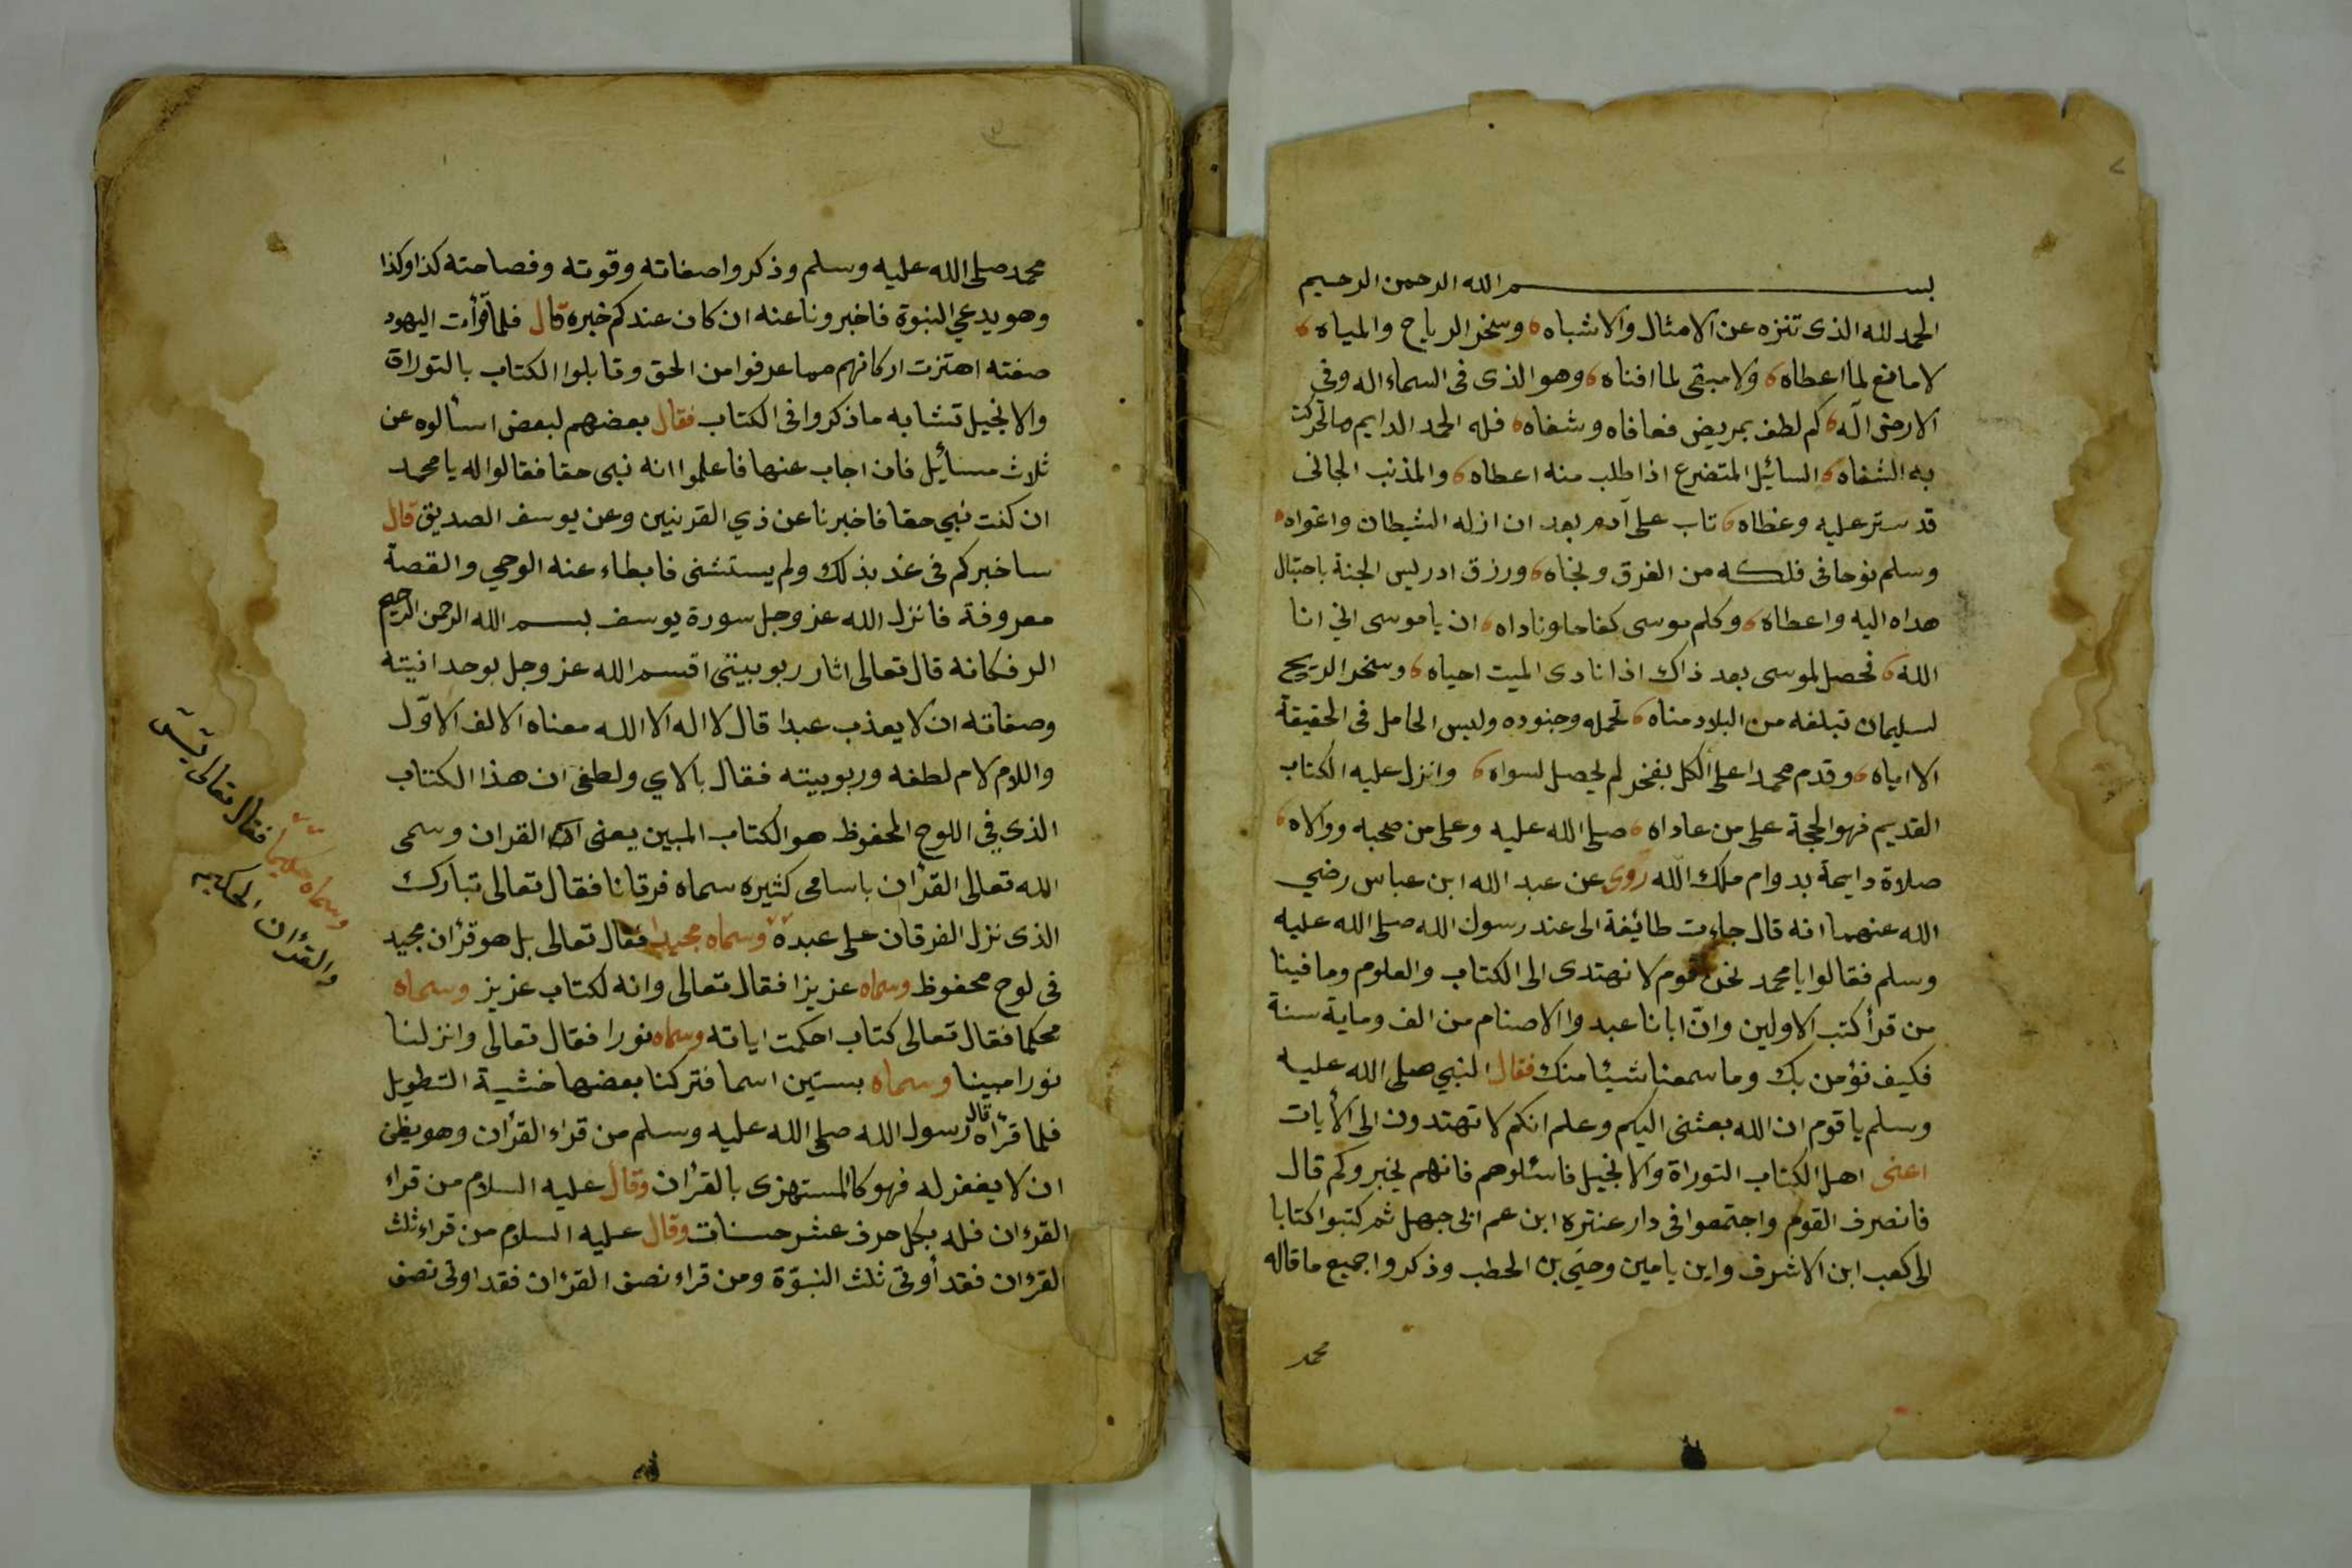 بسم الله الرحمن الرحيم
الحمد لله الذى تنزه عن الامثال والاشباه وسخر الرياح والمياه
لا مانع لما اعطاه ولا مبقى لما افناه وهو الذى فى السماء اله وفي
الارض اله كم لطف بمريض فعافاه وشفاه فله الحمد الدايم ما تحركت
به الشفاه السائيل المتضرع اذا طلب منه اعطاه والمذنب الجانى
قد ستر عليه وغطاه تاب على آدم بعد ان ازله الشيطان واغواه
وسلم نوحا فى فلكه من الغرق ونجاه ورزق ادريس الجنة باحتيال
هداه اليه واعطاه وكلم موسى كفاحا وناداه ان يا موسى اني انا
الله فحصل لموسى بعد ذاك اذا نادى الميت احياه وسخر الريح
لسليمان تبلغه من البلاد مناه تحمله وجنوده وليس الحامل فى الحقيقة
الا اياه وقدم محمدا على الكل بفخر لم يحصل لسواه وانزل عليه الكتاب
القديم فهو الحجة على من عاداه صلى الله عليه وعلى من صحبه ووالاه
صلاة دايمة بدوام ملك الله روى عن عبد الله ابن عباس رضي
الله عنهما انه قال جاءت طائيفة الى عند رسول الله صلى الله عليه
وسلم فقالوا يا محمد نحن قوم لا نهتدى الى الكتاب والعلوم وما فينا
من قرأ كتب الاولين وانّ ابانا عبدوا الاصنام من الف وماية سنة
فكيف نؤمن بك وما سمعنا شيئا منك فقال النبي صلى الله عليه
وسلم يا قوم ان الله بعثنى اليكم وعلم انكم لا تهتدون الى الأيات
اعنى اهل الكتاب التوراة والانجيل فاسئلوهم فانهم يخبروكم قال
فانصرف القوم واجتمعوا فى دار عنتره ابن عم ابى جهل ثم كتبوا كتابا
الى كعب ابن الاشرف وابن يامين وحيّي بن الحطب وذكروا جميع ما قاله
محمد
٣
محمد صلى الله عليه وسلم وذكروا صفاته وقوته وفصاحته كذا وكذا
وهو يدعي النبوة فاخبرونا عنه ان كان عندكم خبره قال فلما قرأت اليهود
صفته اهتزت اركانهم مما عرفوا من الحق وقابلوا الكتاب بالتوراة
والانجيل تشابه ما ذكروا فى الكتاب فقال بعضهم لبعض اسألوه عن
ثلاث مسأئيل فان اجاب عنها فاعلموا انه نبى حقا فقالوا له يا محمد
ان كنت نبي حقا فاخبرنا عن ذي القرنيين وعن يوسف الصديق قال
ساخبركم فى غد بذلك ولم يستثنى فابطاء عنه الوحي والقصة
معروفة فانزل الله عز وجل سورة يوسف بسم الله الرحمن الرحيم
الر فكانه قال تعالى اثار ربوبيتى اقسم الله عز وجل بوحدانيته
وصفاته ان لا يعذب عبدا قال لا اله الا الله معناه الالف الاوّل
واللام لام لطفه وربوبيته فقال بالاي ولطفى ان هذا الكتاب
الذي في اللوح المحفوظ هو الكتاب المبين يعنى القران وسمى
الله تعالى القرأن باسامى كثيره سماه فرقانا فقال تعالى تبارك
الذى نزل الفرقان على عبده وسماه مجيدا فقال تعالى بل هو قرأن مجيد
فى لوح محفوظ وسماه عزيزا فقال تعالى وانه لكتاب عزيز وسماه
محكما فقال تعالى كتاب احكمت اياته وسماه نورا فقال تعالى وانزلنا
نورا مبينا وسماه بستين اسما فتركنا بعضها خشية التطويل
فلما قرأه قال رسول الله صلى الله عليه وسلم من قراء القرأن وهو يظن
ان لا يغفر له فهو كالمستهزى بالقرأن وقال عليه السلام من قراء
القرءان فله بكل حرف عشر حسنات وقال عليه السلام من قراء ثلث
القرءان فقد أوتى ثلث النبوّة ومن قراء نصف القرءان فقد اوتى نصف
وسماه حكيما
فقال تعالى يس
والقرءان الحكيم